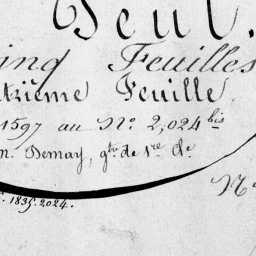 Seul.
inq Feuilles
trième Feuille
1597 au N° 2,024 bis
n. Demay, g. de 1re cl.
N
1835. 2024.